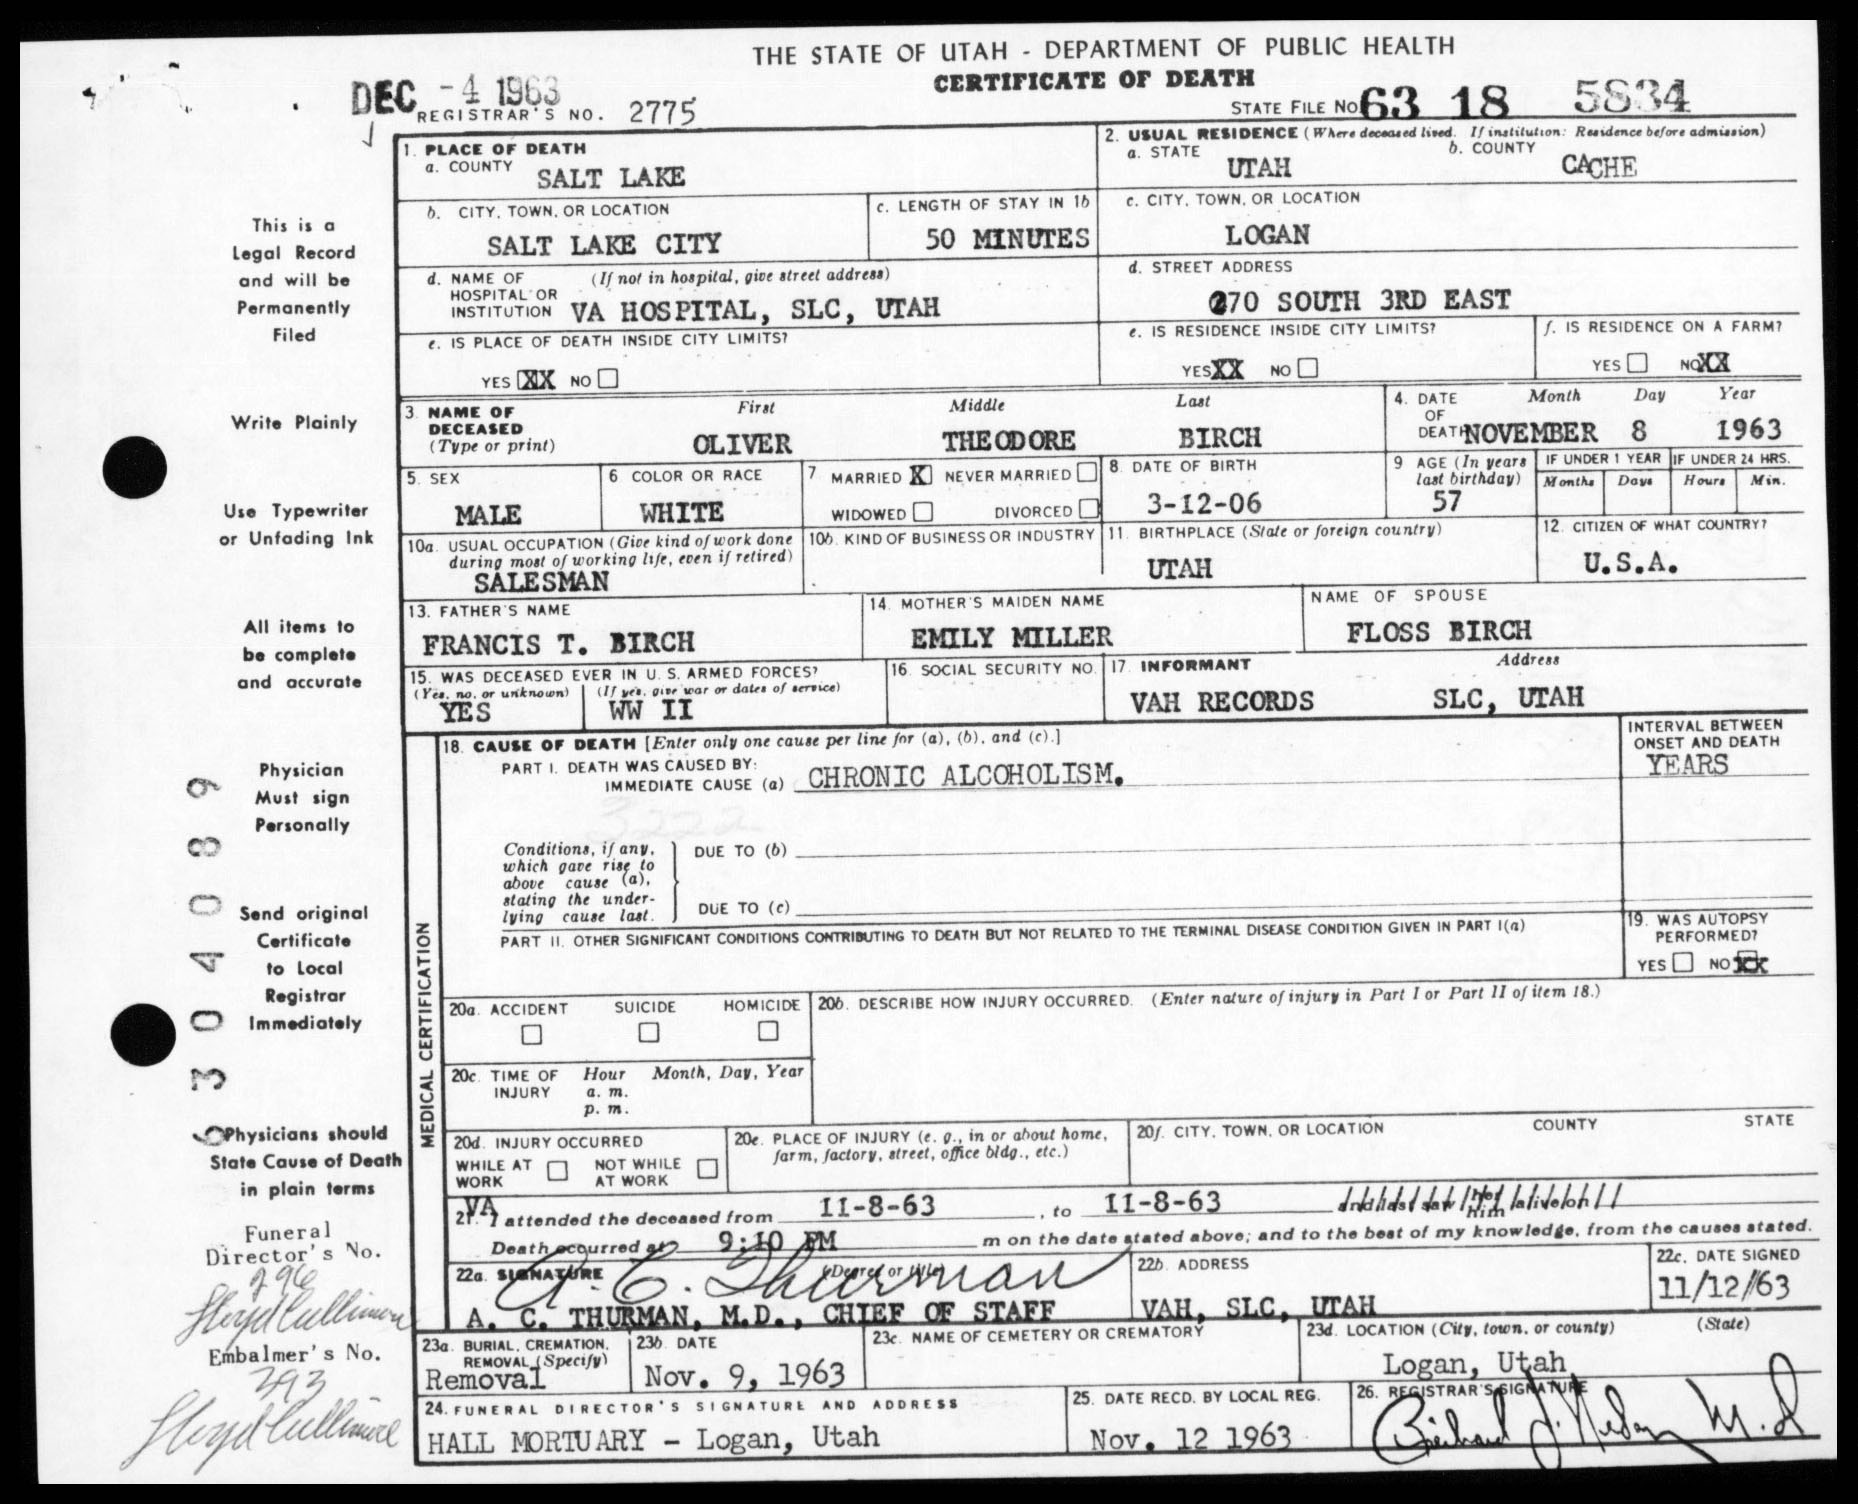 THE STATE OF UTAH - DEPARTMENT OF PUBLIC HEALTH
CERTIFICATE OF DEATH
DEC -4 1963
REGISTRAR'S NO. 2775
STATE FILE NO 63 18 5834
1. PLACE OF DEATH
a. COUNTY SALT LAKE
2. USUAL RESIDENCE (Where deceased lived. If institution: Residence before admission)
a. STATE UTAH b. COUNTY CACHE
b. CITY, TOWN, OR LOCATION SALT LAKE CITY
c. LENGTH OF STAY IN 1b 50 MINUTES
c. CITY, TOWN, OR LOCATION LOGAN
d. NAME OF HOSPITAL OR INSTITUTION (If not in hospital, give street address) VA HOSPITAL, SLC, UTAH
d. STREET ADDRESS 270 SOUTH 3RD EAST
e. IS PLACE OF DEATH INSIDE CITY LIMITS?
YES XX NO
e. IS RESIDENCE INSIDE CITY LIMITS?
YES XX NO
f. IS RESIDENCE ON A FARM?
YES NO XX
3. NAME OF DECEASED (Type or print)
First Middle Last
OLIVER THEODORE BIRCH
4. DATE OF DEATH Month Day Year
NOVEMBER 8 1963
5. SEX MALE
6 COLOR OR RACE WHITE
7 MARRIED X NEVER MARRIED
WIDOWED DIVORCED
8. DATE OF BIRTH 3-12-06
9 AGE (In years last birthday) 57
IF UNDER 1 YEAR Months Days
IF UNDER 24 HRS. Hours Min.
10a. USUAL OCCUPATION (Give kind of work done during most of working life, even if retired)
SALESMAN
10b. KIND OF BUSINESS OR INDUSTRY
11. BIRTHPLACE (State or foreign country)
UTAH
12. CITIZEN OF WHAT COUNTRY?
U.S.A.
13. FATHER'S NAME
FRANCIS T. BIRCH
14. MOTHER'S MAIDEN NAME
EMILY MILLER
NAME OF SPOUSE
FLOSS BIRCH
15. WAS DECEASED EVER IN U. S. ARMED FORCES?
(Yes, no, or unknown) (If yes, give war or dates of service)
YES WW II
16. SOCIAL SECURITY NO.
17. INFORMANT Address
VAH RECORDS SLC, UTAH
MEDICAL CERTIFICATION
18. CAUSE OF DEATH [Enter only one cause per line for (a), (b), and (c).]
PART I. DEATH WAS CAUSED BY:
IMMEDIATE CAUSE (a) CHRONIC ALCOHOLISM.
INTERVAL BETWEEN ONSET AND DEATH
YEARS
3222
Conditions, if any, which gave rise to above cause (a), stating the underlying cause last.
DUE TO (b)
DUE TO (c)
PART II. OTHER SIGNIFICANT CONDITIONS CONTRIBUTING TO DEATH BUT NOT RELATED TO THE TERMINAL DISEASE CONDITION GIVEN IN PART I(a)
19. WAS AUTOPSY PERFORMED?
YES NO XX
20a. ACCIDENT SUICIDE HOMICIDE
20b. DESCRIBE HOW INJURY OCCURRED. (Enter nature of injury in Part I or Part II of item 18.)
20c. TIME OF INJURY Hour Month, Day, Year
a. m.
p. m.
20d. INJURY OCCURRED
WHILE AT WORK NOT WHILE AT WORK
20e. PLACE OF INJURY (e. g., in or about home, farm, factory, street, office bldg., etc.)
20f. CITY, TOWN, OR LOCATION COUNTY STATE
VA
21. I attended the deceased from 11-8-63, to 11-8-63 and last saw her him alive on
Death occurred at 9:10 PM m on the date stated above; and to the best of my knowledge, from the causes stated.
22a. SIGNATURE (Degree or title) A. C. Thurman
A. C. THURMAN, M.D., CHIEF OF STAFF
22b. ADDRESS
VAH, SLC, UTAH
22c. DATE SIGNED
11/12/63
23a. BURIAL, CREMATION, REMOVAL (Specify)
Removal
23b. DATE
Nov. 9, 1963
23c. NAME OF CEMETERY OR CREMATORY
23d. LOCATION (City, town, or county) (State)
Logan, Utah
24. FUNERAL DIRECTOR'S SIGNATURE AND ADDRESS
HALL MORTUARY - Logan, Utah
25. DATE RECD. BY LOCAL REG.
Nov. 12 1963
26. REGISTRAR'S SIGNATURE
M.D
This is a
Legal Record
and will be
Permanently
Filed
Write Plainly
Use Typewriter
or Unfading Ink
All items to
be complete
and accurate
Physician
Must sign
Personally
Send original
Certificate
to Local
Registrar
Immediately
Physicians should
State Cause of Death
in plain terms
304089
Funeral
Director's No.
296
Lloyd Cullimore
Embalmer's No.
293
Lloyd Cullimore